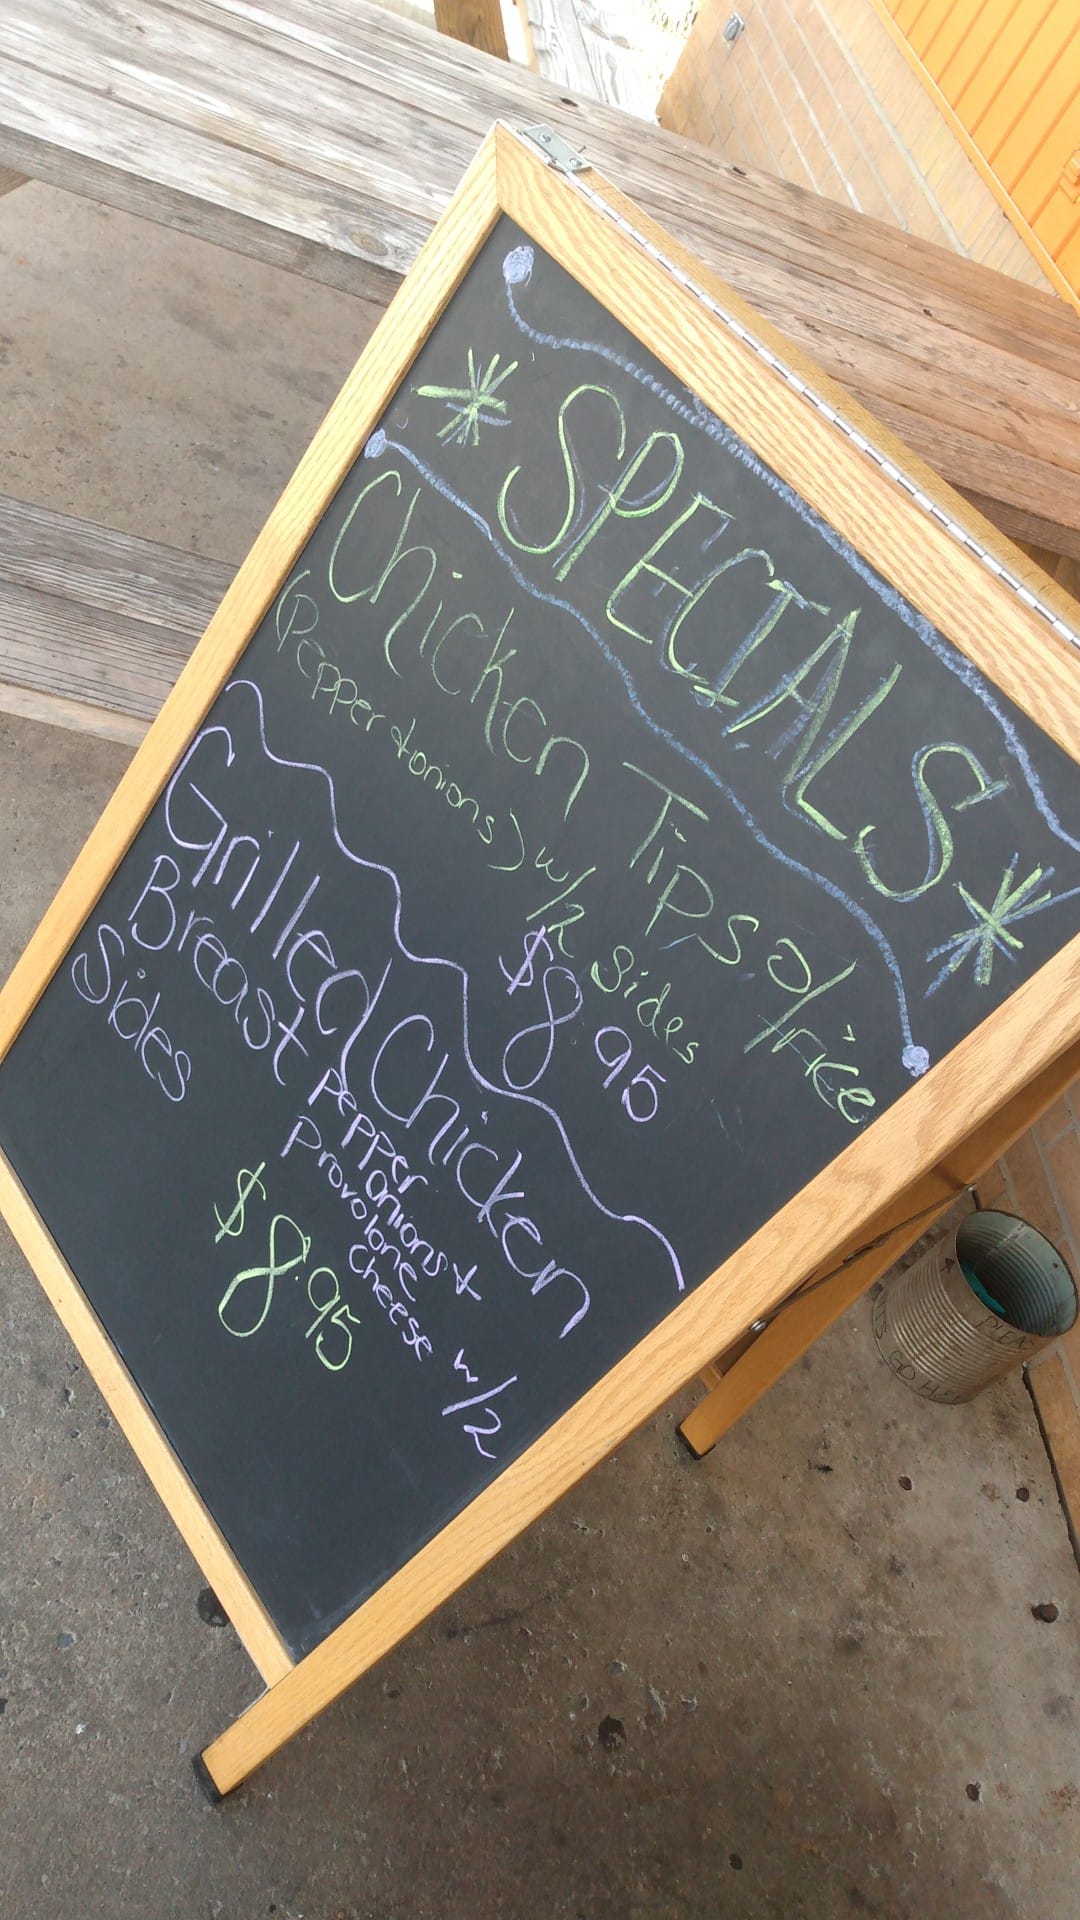 * SPECIALS *
Chicken Tips a/rice
(Pepper & onions) w/2 Sides
$8.95
Grilled Chicken
Breast Pepper
onions +
Provolone
Cheese w/2
Sides
$8.95
GO HERE